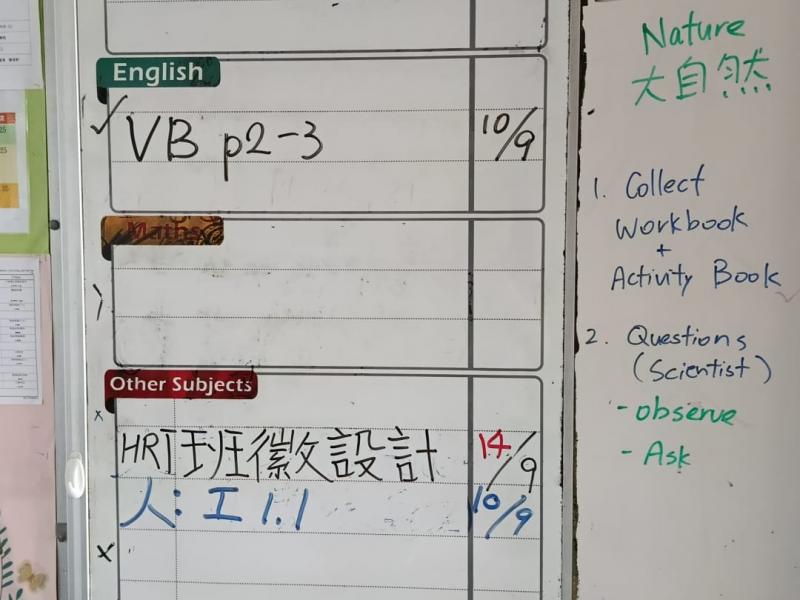 English
VB p2-3 10/9
Maths
Other Subjects
HRT班徽設計 14/9
人: 工 1.1 10/9
Nature
大自然
1. Collect
Workbook
+
Activity Book
2. Questions
(Scientist)
- observe
- Ask